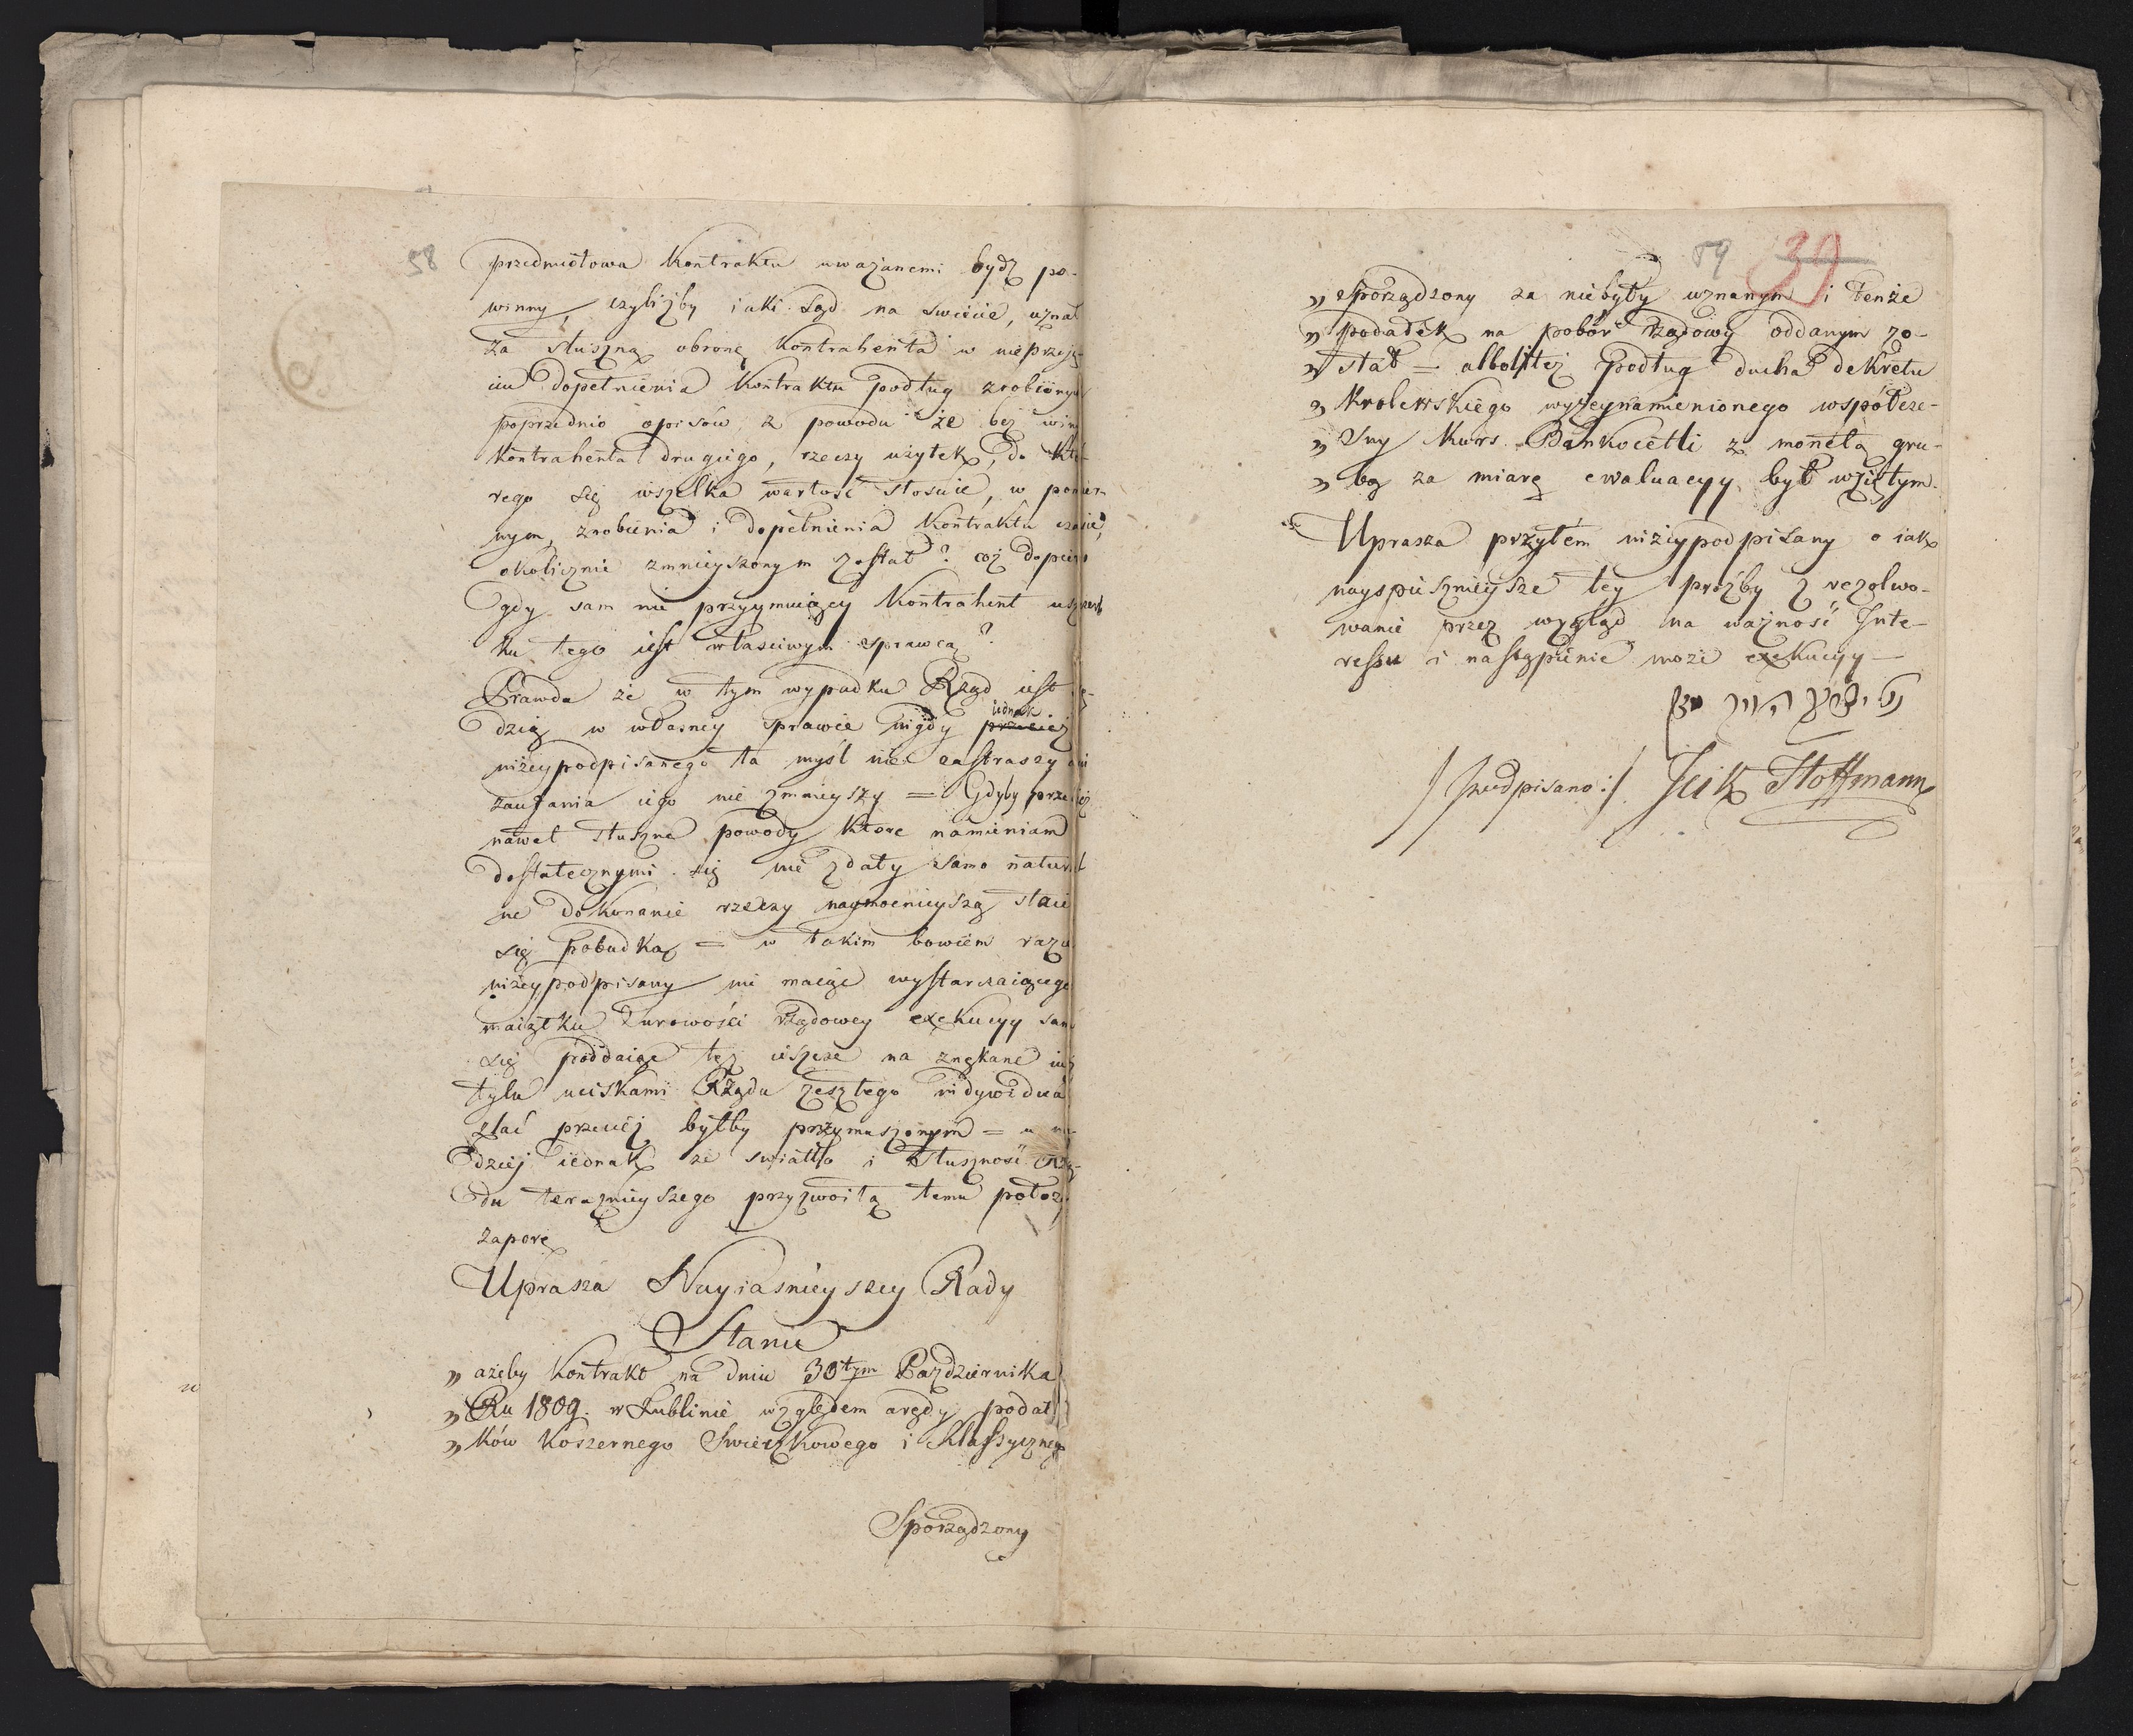 58
przedmiotowa Kontraktu uważanemi bydź po-
winny, czyliżby iaki Sąd na swiecie, uznał
za słuszną obronę Kontrahenta w nieprzeję-
ciu dopełnienia Kontraktu podług zrobionych
poprzednio opisów, z powodu że bez winy
Kontrahenta drugiego, rzeczy użytek, do któ-
rego się wszelka wartość stosuie, w pomier-
nym, zrobienia i dopełnienia Kontraktu czasie,
okolicznie zmnieyszonym został? coż dopiero
gdy sam nie przyymuiący Kontrahent uszczerb
ku tego iest właściwym sprawcą?
Prawda że w tym wypadku Rząd iest sę-
dzią w własney sprawie nigdy przecież iednak
niżeypodpisanego ta myśl nie zastraszy ani
zaufania iego nie zmnieyszy = Gdyby przecież
nawet słuszne powody które namieniam
dostatecznymi się nie zdały samo natural
ne dokonanie rzeczy naymocnieyszą staie
się pobudką = w takim bowiem razie
niżeypodpisany nie maiąc wystarczaiącego
maiątku surowości rządowey exekucyy sam
się poddaiąc tęż ieszcze na znękane iuż
tylu uciskami Rządu zeszłego indywidua
zlać przecież byłby przymuszonym = w na-
dziei iednak że swiatło i słuszność Rzą-
du teraznieyszego przyzwoitą temu położy
zaporę
Uprasza Nayiaśnieyszey Rady
Stanu
„ ażeby Kontrakt na dniu 30tym Pazdziernika
„ Ru 1809. w Lublinie względem arędy podat
„ ków Koszernego Swieczkowego i Klassycznego
Sporządzony
59 39
„ sporządzony za niebyły uznanym i tenże
„ podatek na pobór rządowy oddanym zo-
„ stał = alboliteż podług ducha dekretu
„ Krolewskiego wyżeynamienionego współcze-
„ sny Kurs Bankocetli z monetą gru-
„ bą za miarę ewaluacyy był wziętym.
Uprasza przytém niżeypodpisany o iak
nayspieszneysze tey proźby zrezolwo-
wanie przez wzgląd na ważność Inte-
ressu i nastąpienie może exekucyy —
/ podpisano:/ Icik Hoffmann